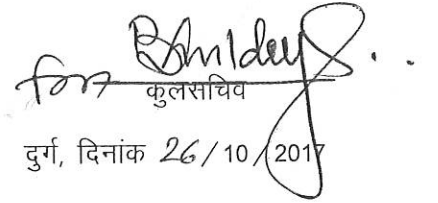 for
कुलसचिव
दुर्ग, दिनांक 26/10/2017